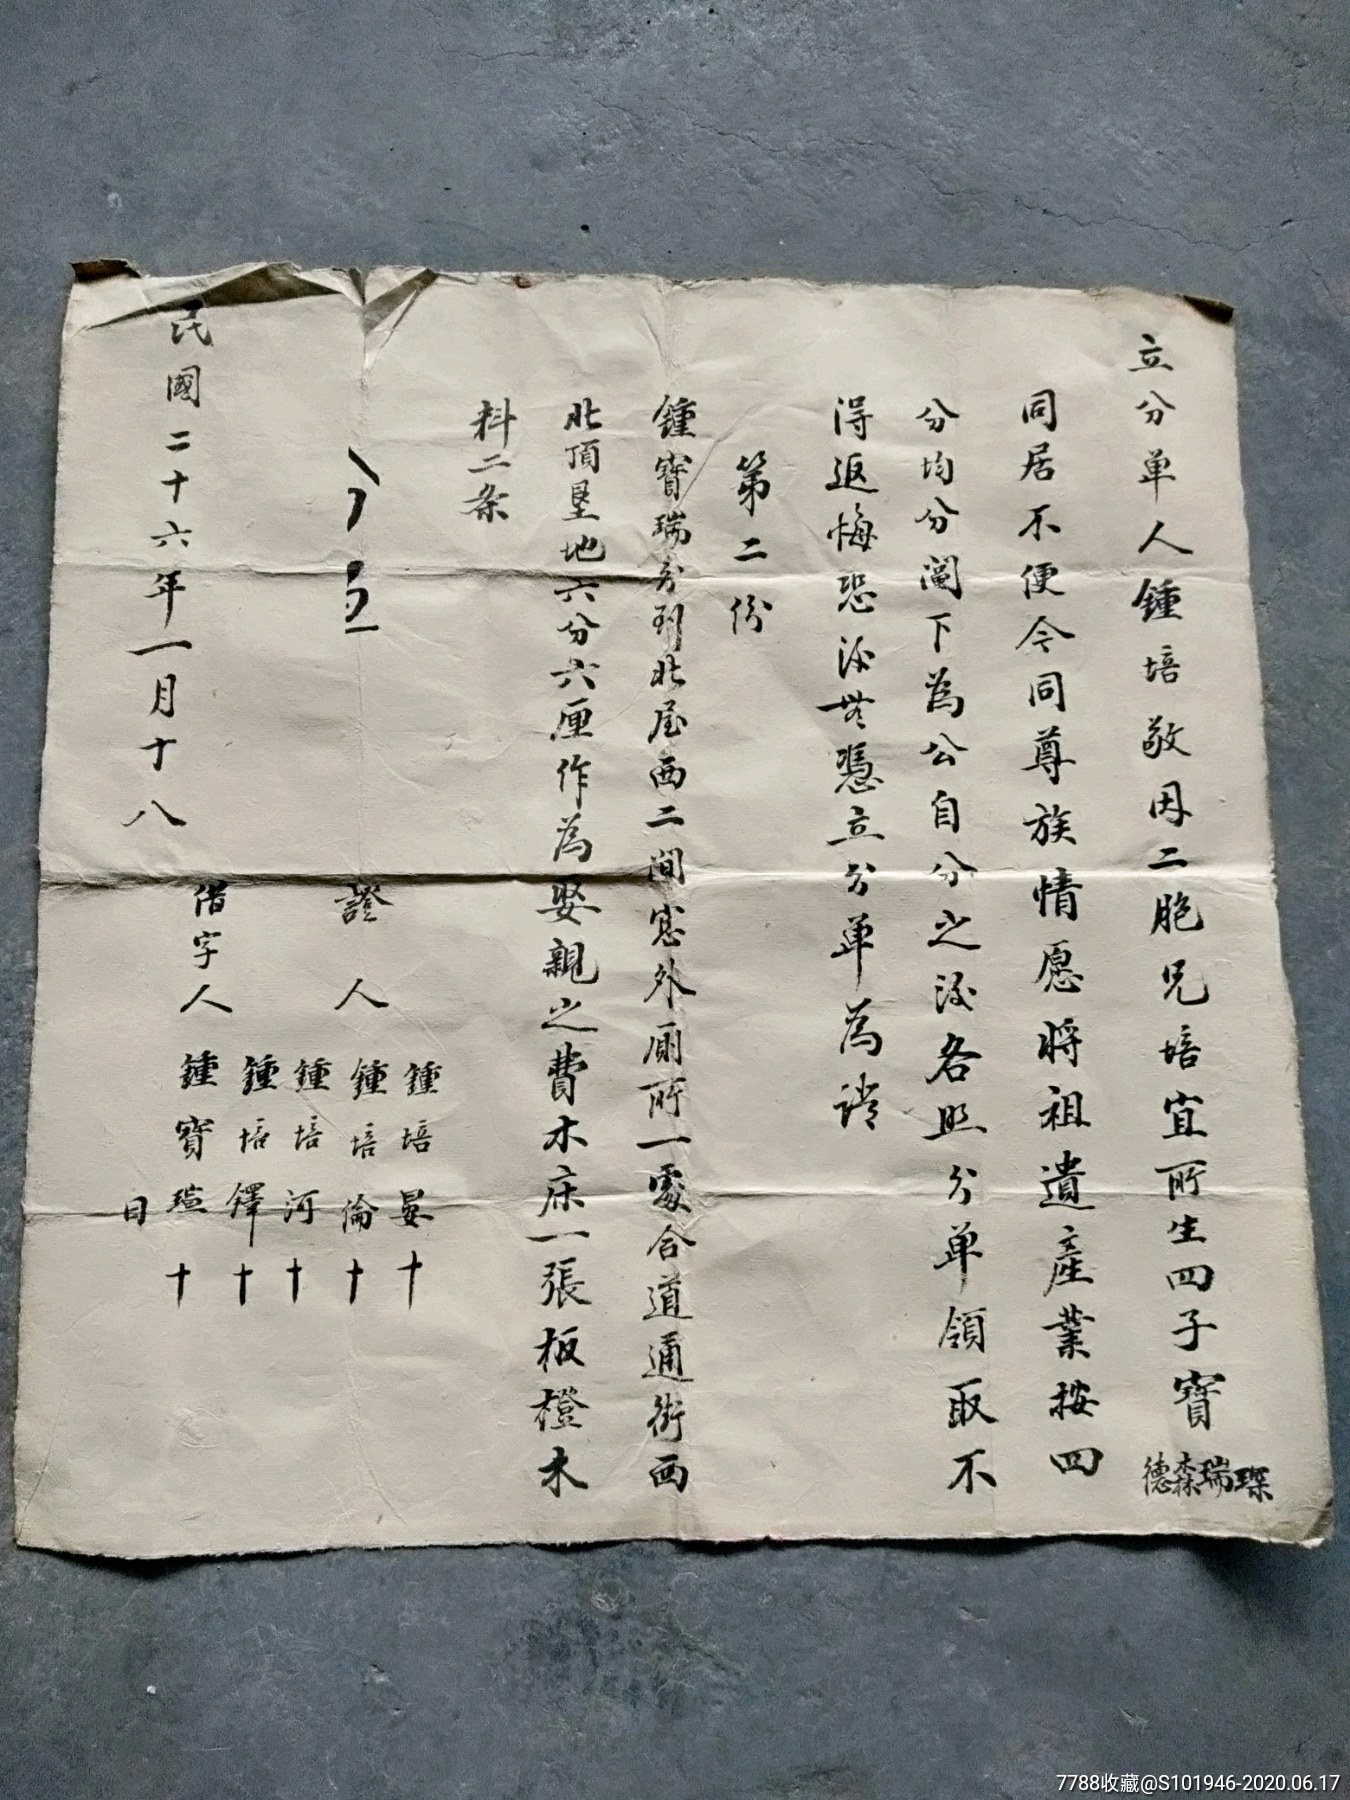 立分单人鍾培敬因二胞兄培宜所生四子寳琛瑞森德
同居不便今同尊族情愿將祖遺產業按四
分均分阄下為公自分之後各照分单領取不
得返悔恐後無憑立分单為證
第二份
鍾寳瑞分到北屋西二间窓外厠所一處合道通街西
北頂垦地六分六厘作為娶親之費木床一張板櫈木
料二条
證人
鍾培晏十
鍾培倫十
鍾培河十
鍾培鐸十
借字人
鍾寳瑄十
民國二十六年一月十八日
7788收藏@S101946-2020.06.17